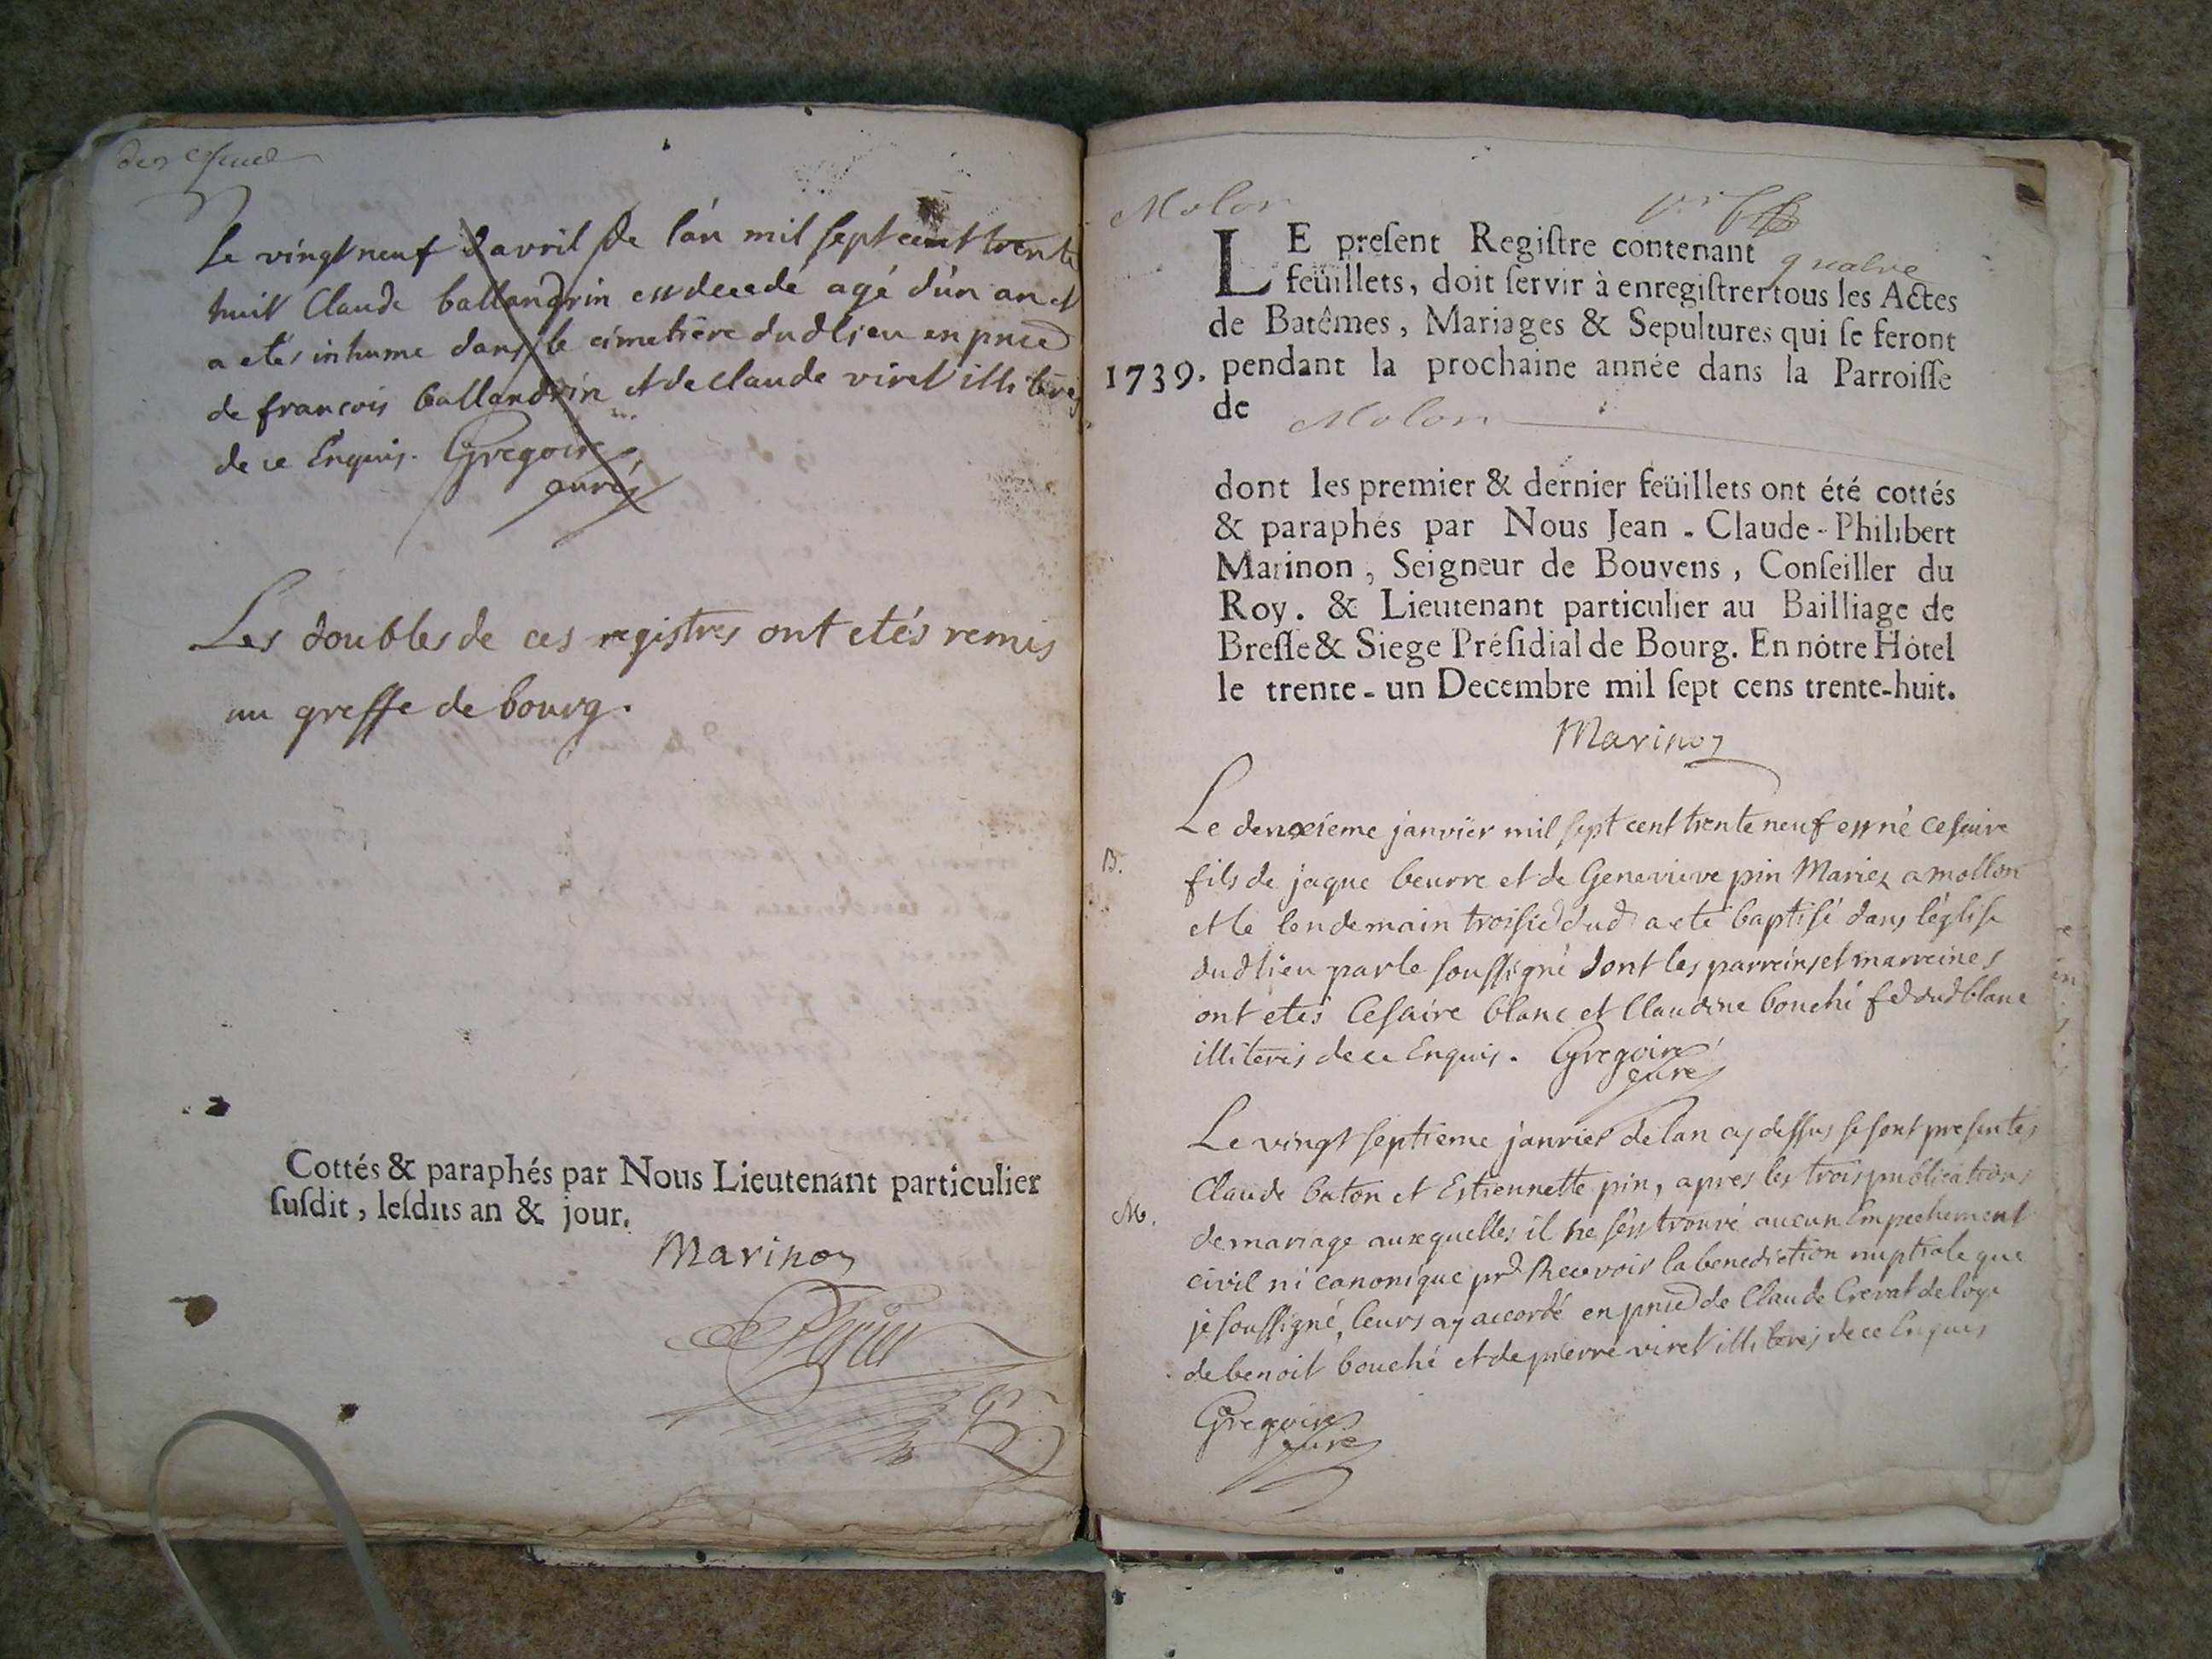 Le vingt neuf d'avril de l'an mil sept cent trente
huit Claude ballandrin est decedé agé d'un an et
a etés inhume dans le cimetière dud lieu en pnce
de françois ballandrin et de claude viret illiterés
de ce Enquis. Gregoire
curé
Les doubles de ces registres ont etés remis
au greffe de bourg.
Cottés & paraphés par Nous Lieutenant particulier
suſdit, leſdits an & jour.
Marinon
Molon
LE preſent Regiſtre contenant quatre
feüillets, doit ſervir à enregiſtrer tous les Actes
de Batêmes, Mariages & Sepultures qui ſe feront
1739. pendant la prochaine année dans la Parroiſſe
de Molon
dont les premier & dernier feüillets ont été cottés
& paraphés par Nous Jean-Claude-Philibert
Marinon, Seigneur de Bouvens, Conſeiller du
Roy. & Lieutenant particulier au Bailliage de
Breſſe & Siege Préſidial de Bourg. En nôtre Hôtel
le trente-un Decembre mil ſept cens trente-huit.
Marinon
Le deuxieme janvier mil sept cent trente neuf est né Cesaire
B. fils de jaque beurre et de Genevieve pin Mariez a mollon
et le lendemain troisie dud a eté baptisé dans l'église
dud lieu par le soussigné dont les parreins et marreines
ont etés Cesaire blanc et Claudine bouché fe dud blanc
illiterés de ce Enquis. Gregoire
curé
Le vingt septieme janvier de lan cy dessus se sont presentes
Claude baton et Estiennette pin, apres les trois publications
M. de mariage auxquelles il ne s'est trouvé aucun Empechement
civil ni canonique pr Recevoir la benediction nuptiale que
je soussigné, leurs ay accordé en pnce de Claude Crevat de loye
de benoit bouché et de pierre viret illiterés de ce Enquis
Gregoire
curé